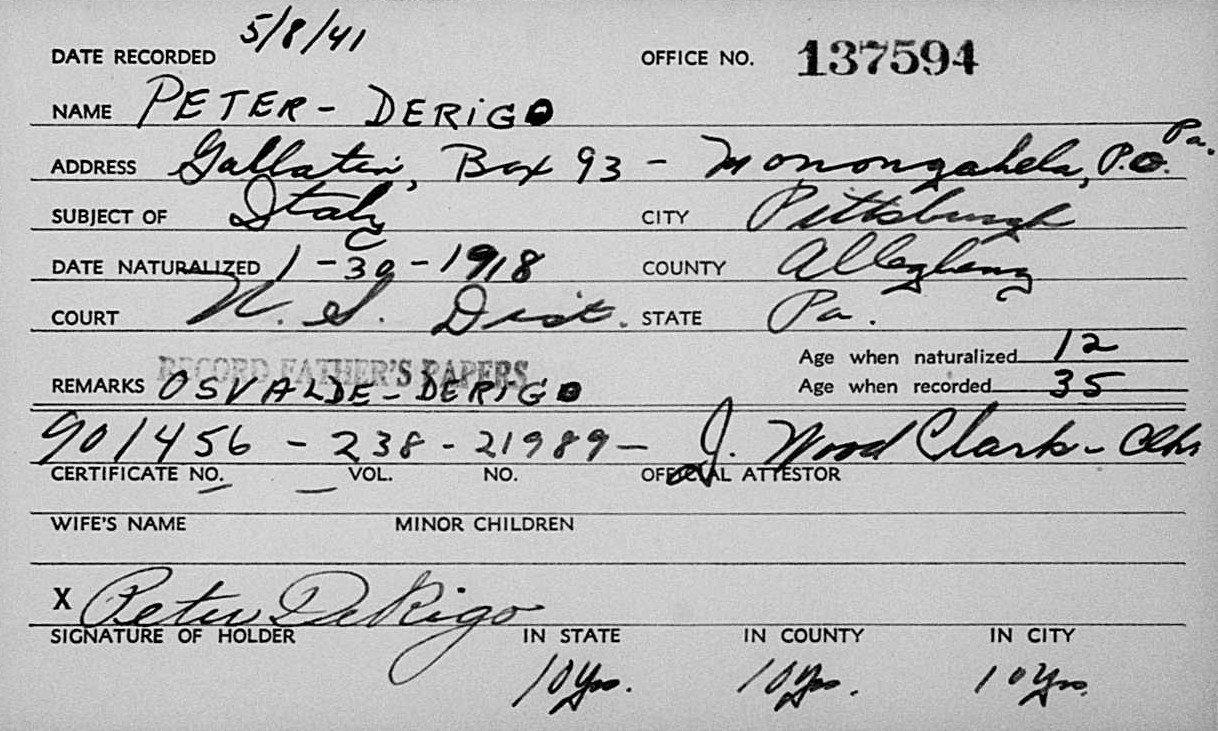 DATE RECORDED 5/8/41 OFFICE NO. 137594
NAME PETER - DERIGO
Pa.
ADDRESS Gallatin, Box 93 - Monongahela, P.O.
SUBJECT OF Italy CITY Pittsburgh
DATE NATURALIZED 1-30-1918 COUNTY Allegheny
COURT U.S. Dist. STATE Pa.
RECORD FATHER'S PAPERS Age when naturalized 12
REMARKS OSVALDE - DERIGO Age when recorded 35
901456 - 238 - 21989 - J. Wood Clark - Clk
CERTIFICATE NO. VOL. NO. OFFICIAL ATTESTOR
WIFE'S NAME MINOR CHILDREN
X Peter DeRigo
SIGNATURE OF HOLDER IN STATE IN COUNTY IN CITY
10 Yrs. 10 Yrs. 10 Yrs.